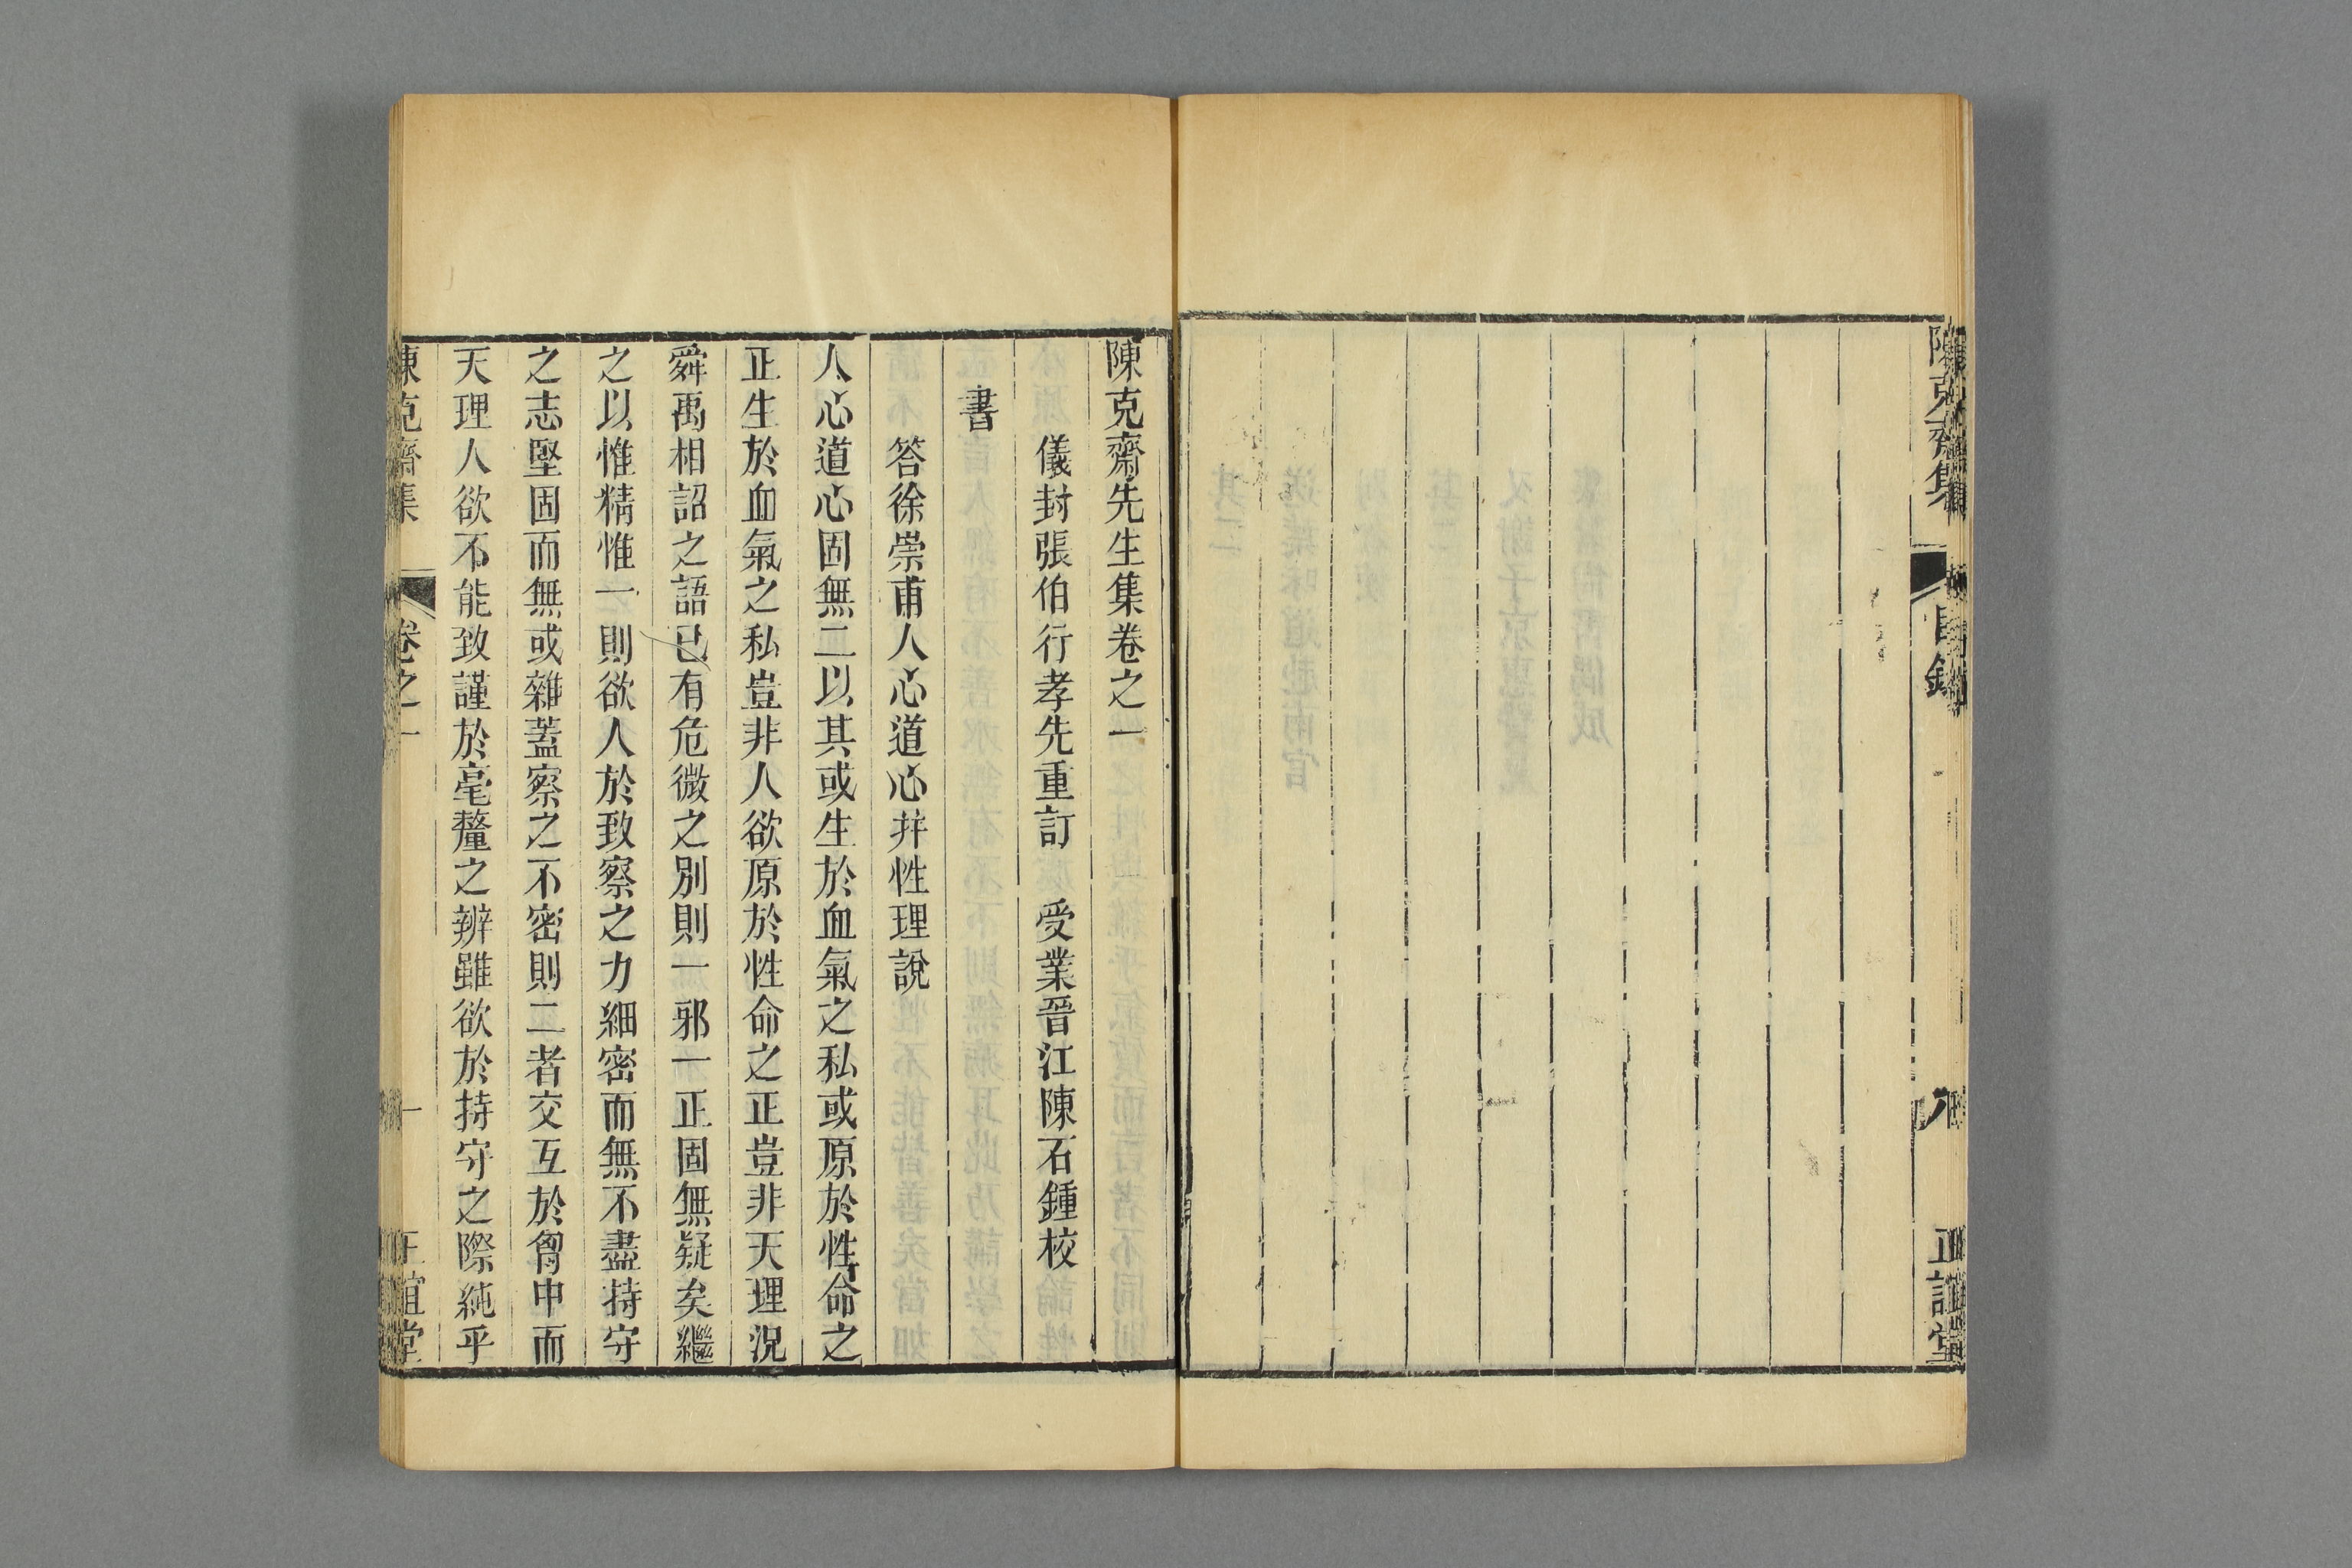 陳克齋集
目錄
八
正誼堂
陳克齋先生集卷之一
儀封張伯行孝先重訂　受業晉江陳石鍾校
書
答徐崇甫人心道心并性理說
人心道心固無二以其或生於血氣之私或原於性命之
正生於血氣之私豈非人欲原於性命之正豈非天理況
舜禹相詔之語已有危微之別則一邪一正固無疑矣繼
之以惟精惟一則欲人於致察之力細密而無不盡持守
之志堅固而無或雜蓋察之不密則二者交互於胷中而
天理人欲不能致謹於毫釐之辨雖欲於持守之際純乎
陳克齋集
卷之一
一
正誼堂